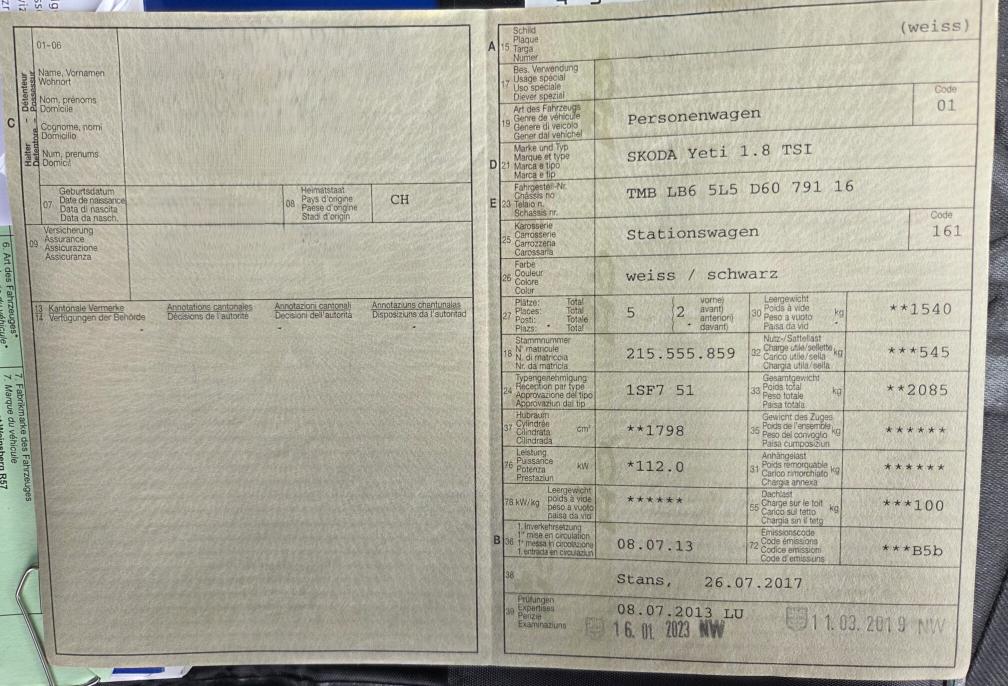 C
Halter – Détenteur
Detentore – Possessur
01-06
Name, Vornamen
Wohnort
Nom, prénoms
Domicile
Cognome, nomi
Domicilio
Num, prenums
Domicil
07
Geburtsdatum
Date de naissance
Data di nascita
Data da nasch.
08
Heimatstaat
Pays d'origine
Paese d'origine
Stadi d'origin
CH
09
Versicherung
Assurance
Assicurazione
Assicuranza
13 Kantonale Vermerke
14 Verfügungen der Behörde
Annotations cantonales
Décisions de l'autorité
Annotazioni cantonali
Decisioni dell'autorità
Annotaziuns chantunalas
Disposiziuns da l'autoritad
A 15
Schild
Plaque
Targa
Numer
(weiss)
17
Bes. Verwendung
Usage spécial
Uso speciale
Diever spezial
19
Art des Fahrzeugs
Genre de véhicule
Genere di veicolo
Gener dal vehichel
Personenwagen
Code
01
D 21
Marke und Typ
Marque et type
Marca e tipo
Marca e tip
SKODA Yeti 1.8 TSI
E 23
Fahrgestell-Nr.
Châssis no
Telaio n.
Schassis nr.
TMB LB6 5L5 D60 791 16
25
Karosserie
Carrosserie
Carrozzeria
Carossaria
Stationswagen
Code
161
26
Farbe
Couleur
Colore
Colur
weiss / schwarz
27
Plätze: Total
Places: Total
Posti: Totale
Plazs: Total
5
2
vorne)
avant)
anteriori)
davant)
30
Leergewicht
Poids à vide
Peso a vuoto
Paisa da vid
kg
**1540
18
Stammnummer
N° matricule
N. di matricola
Nr. da matricla
215.555.859
32
Nutz-/Sattellast
Charge utile/sellette
Carico utile/sella
Chargia utila/sella
kg
***545
24
Typengenehmigung
Réception par type
Approvazione del tipo
Approvaziun dal tip
1SF7 51
33
Gesamtgewicht
Poids total
Peso totale
Paisa totala
kg
**2085
37
Hubraum
Cylindrée
Cilindrata
Cilindrada
cm³
**1798
35
Gewicht des Zuges
Poids de l'ensemble
Peso del convoglio
Paisa cumposiziun
kg
******
76
Leistung
Puissance
Potenza
Prestaziun
kW
*112.0
31
Anhängelast
Poids remorquable
Carico rimorchiato
Chargia annexa
kg
******
78 kW/kg
Leergewicht
poids à vide
peso a vuoto
paisa da vid
******
55
Dachlast
Charge sur le toit
Carico sul tetto
Chargia sin il tetg
kg
***100
B 36
1. Inverkehrsetzung
1re mise en circulation
1a messa in circolazione
1. entrada en circulaziun
08.07.13
72
Emissionscode
Code émissions
Codice emissioni
Code d'emissiuns
***B5b
38
Stans, 26.07.2017
39
Prüfungen
Expertises
Perizie
Examinaziuns
08.07.2013 LU
16. 01. 2023 NW
11. 03. 2019 NW
6. Art des Fahrzeuges*
7. Fabrikmarke des Fahrzeuges
7. Marque du véhicule